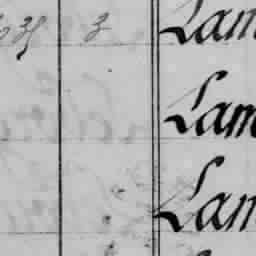 3 Lam
Lam
Lam